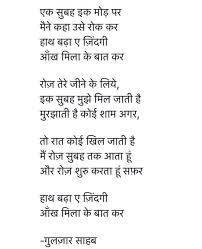 एक सुबह इक मोड़ पर
मैने कहा उसे रोक कर
हाथ बढ़ा ए ज़िंदगी
आँख मिला के बात कर
रोज़ तेरे जीने के लिये,
इक सुबह मुझे मिल जाती है
मुरझाती है कोई शाम अगर,
तो रात कोई खिल जाती है
मैं रोज़ सुबह तक आता हूं
और रोज़ शुरु करता हूं सफ़र
हाथ बढ़ा ए ज़िंदगी
आँख मिला के बात कर
-गुलज़ार साहब